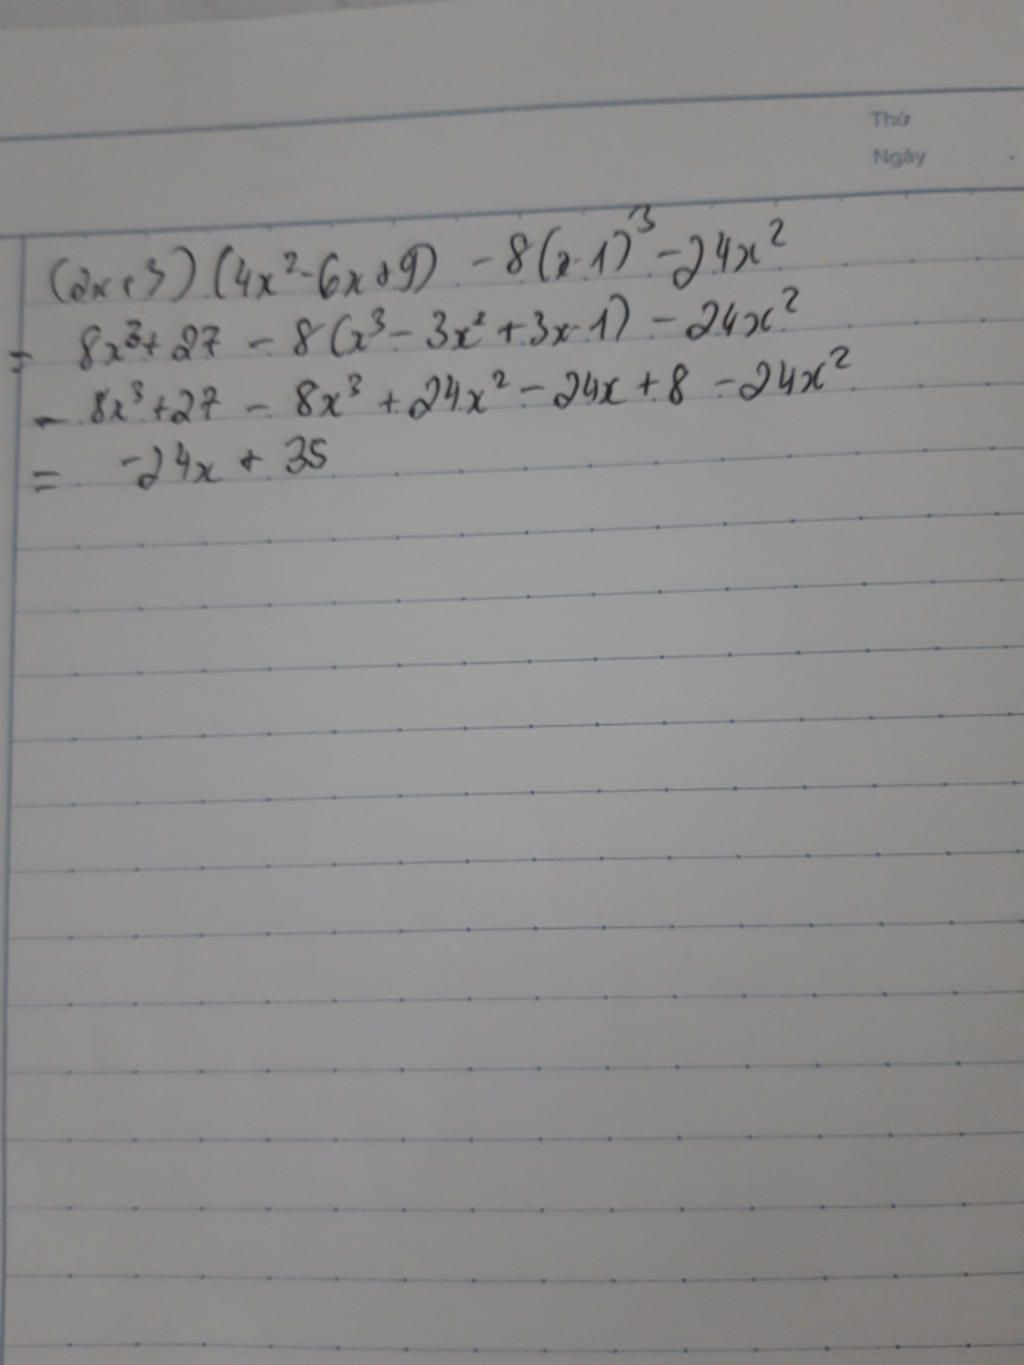 Thứ
Ngày
(2x+3)(4x²-6x+9) -8(x-1)³-24x²
= 8x³+27 - 8(x³-3x²+3x-1) - 24x²
- 8x³+27 - 8x³ +24x²-24x+8 -24x²
= -24x + 35